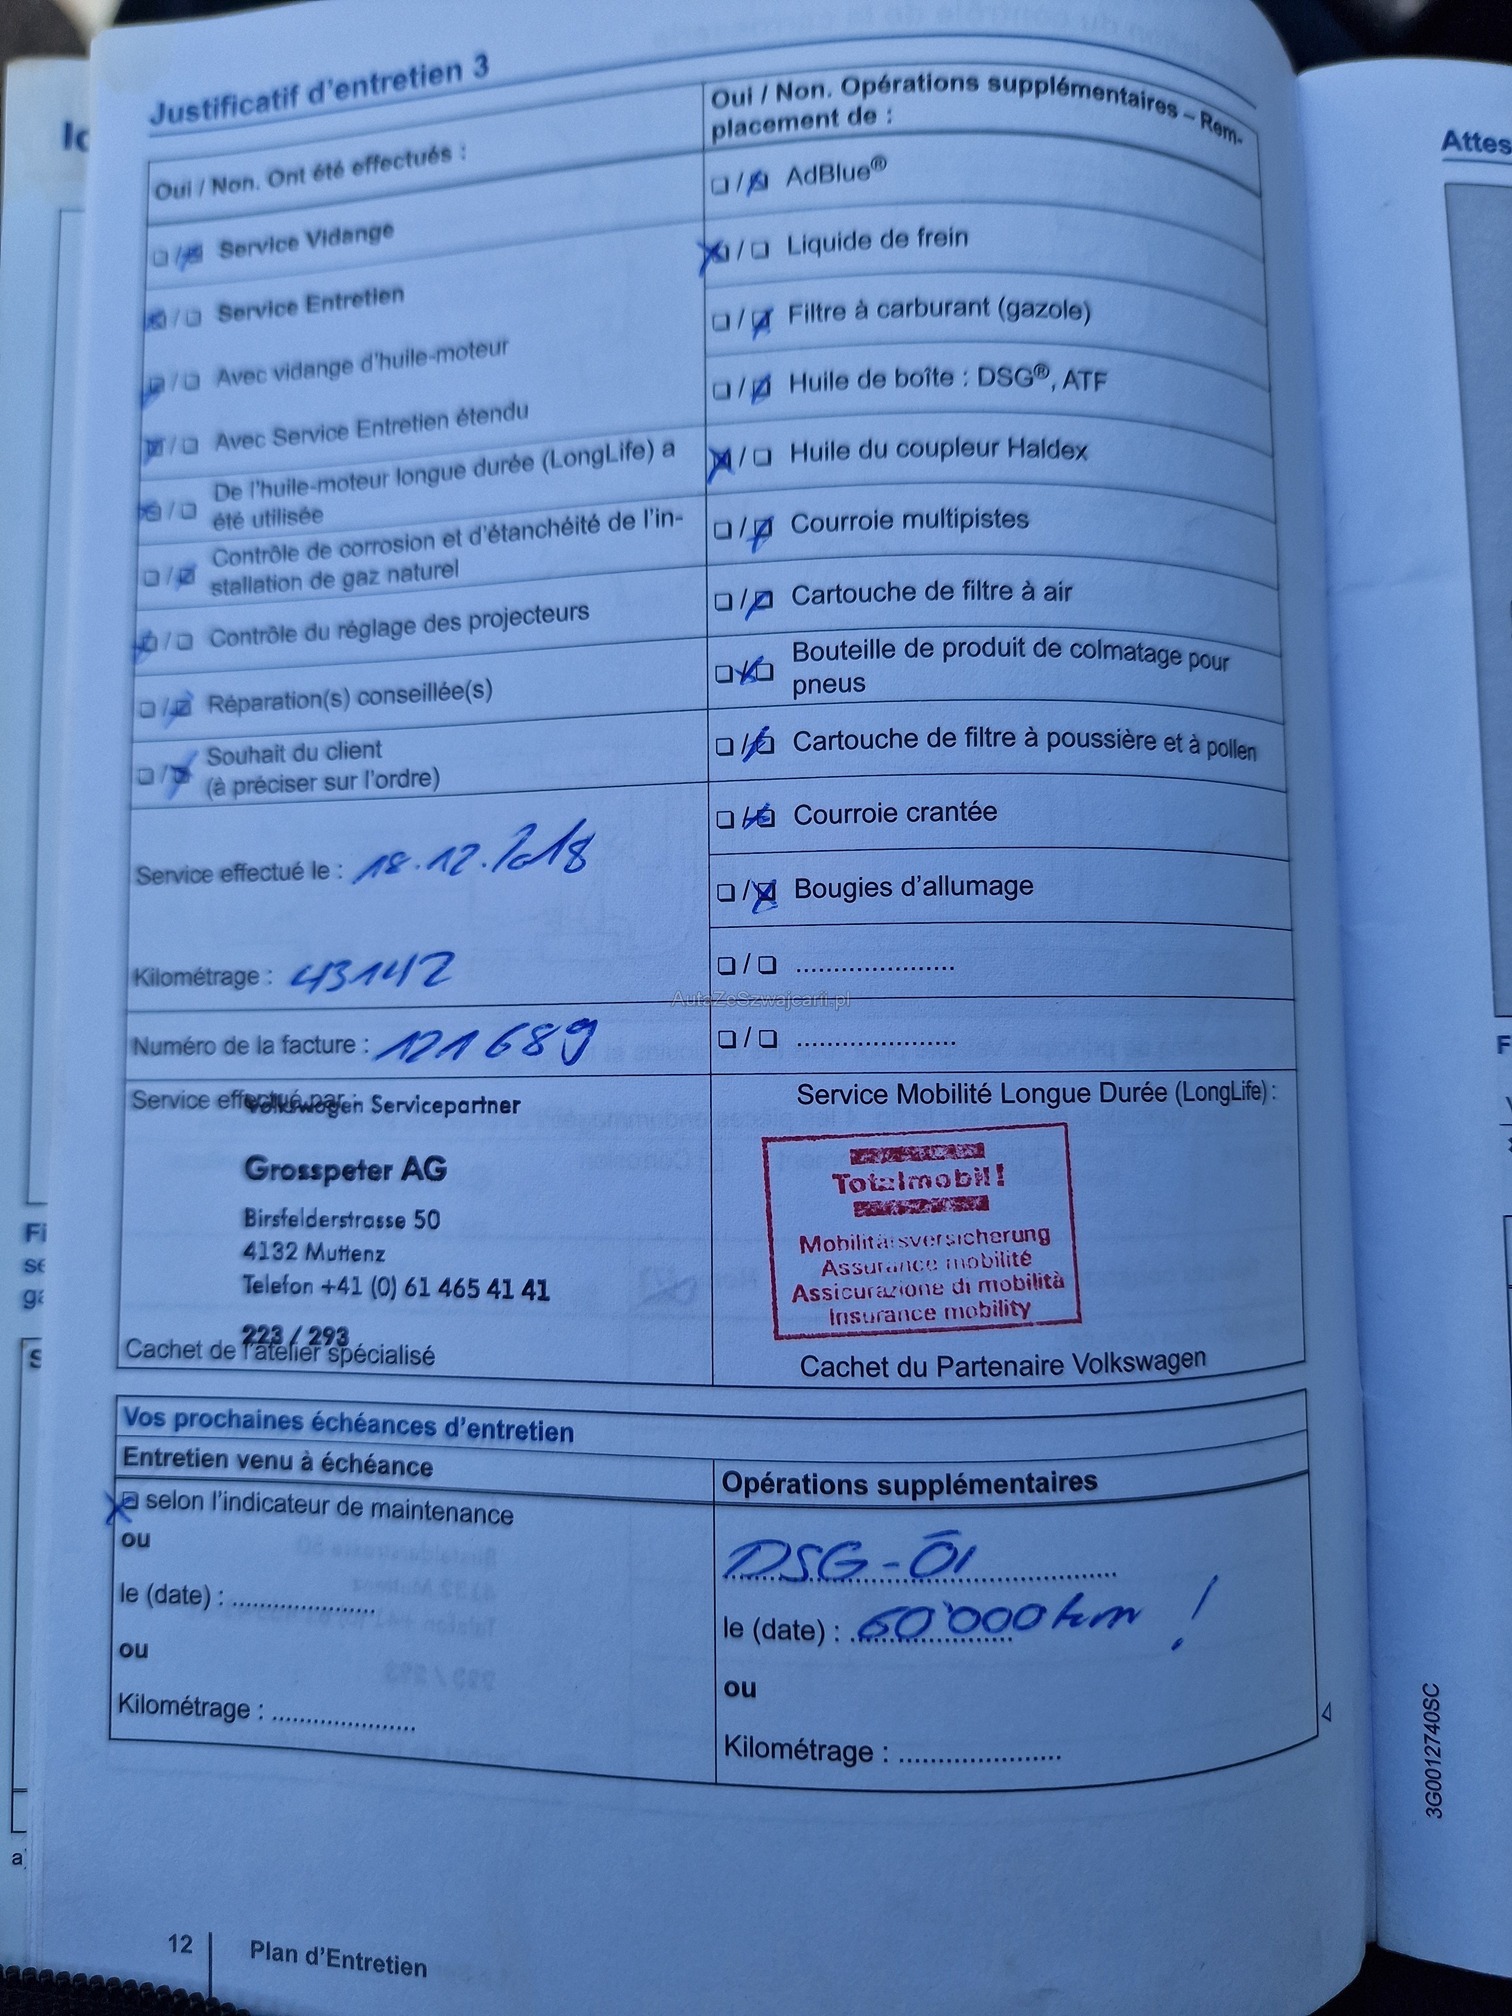 Justificatif d'entretien 3
Oui / Non. Ont été effectués :
❏ / ❏ Service Vidange
❏ / ❏ Service Entretien
❏ / ❏ Avec vidange d'huile-moteur
❏ / ❏ Avec Service Entretien étendu
❏ / ❏ De l'huile-moteur longue durée (LongLife) a
été utilisée
❏ / ❏ Contrôle de corrosion et d'étanchéité de l'in-
stallation de gaz naturel
❏ / ❏ Contrôle du réglage des projecteurs
❏ / ❏ Réparation(s) conseillée(s)
❏ / ❏ Souhait du client
(à préciser sur l'ordre)
Service effectué le : 18.12.2018
Kilométrage : 43142
Numéro de la facture : 121689
Service effectué par :
Volkswagen Servicepartner
Grosspeter AG
Birsfelderstrasse 50
4132 Muttenz
Telefon +41 (0) 61 465 41 41
223 / 293
Cachet de l'atelier spécialisé
Oui / Non. Opérations supplémentaires – Rem-
placement de :
❏ / ❏ AdBlue®
❏ / ❏ Liquide de frein
❏ / ❏ Filtre à carburant (gazole)
❏ / ❏ Huile de boîte : DSG®, ATF
❏ / ❏ Huile du coupleur Haldex
❏ / ❏ Courroie multipistes
❏ / ❏ Cartouche de filtre à air
❏ / ❏ Bouteille de produit de colmatage pour
pneus
❏ / ❏ Cartouche de filtre à poussière et à pollen
❏ / ❏ Courroie crantée
❏ / ❏ Bougies d'allumage
❏ / ❏ .....................
❏ / ❏ .....................
Service Mobilité Longue Durée (LongLife) :
Totalmobil!
Mobilitätsversicherung
Assurance mobilité
Assicurazione di mobilità
Insurance mobility
Cachet du Partenaire Volkswagen
AutaZeSzwajcarii.pl
Vos prochaines échéances d'entretien
Entretien venu à échéance
❏ selon l'indicateur de maintenance
ou
le (date) : .....................
ou
Kilométrage : .....................
Opérations supplémentaires
DSG-Öl
le (date) : 60'000 km !
ou
Kilométrage : .....................
12 Plan d'Entretien
3G0012740SC
Attes